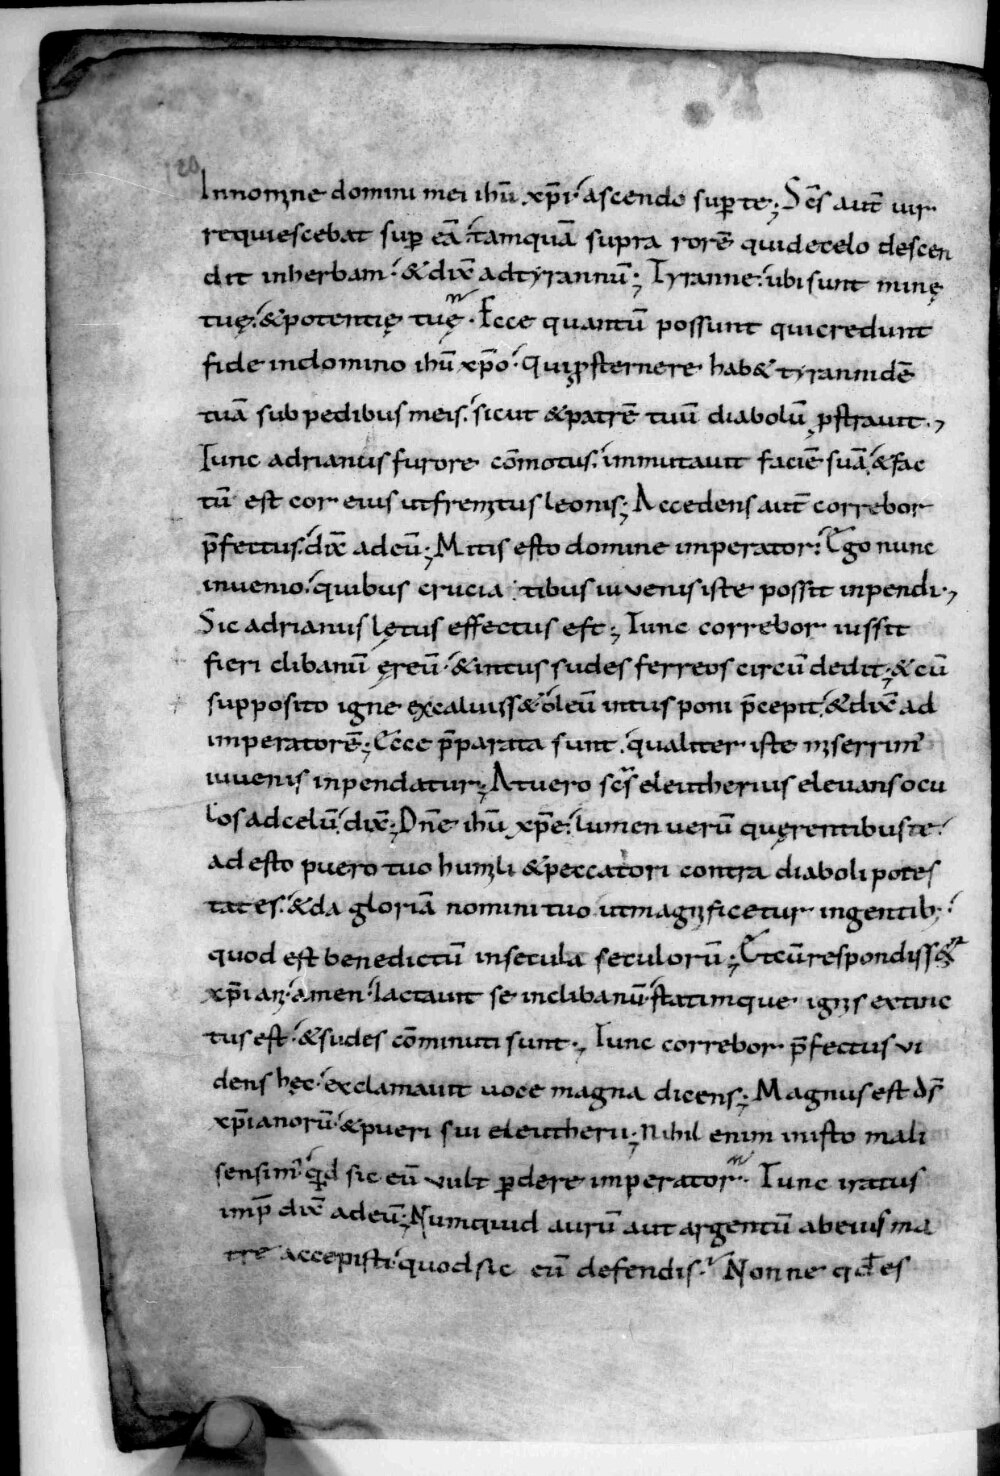 Innomine domini mei ihū xp̄i ascendo sup te; Scs̄ aut̄ uir
requiescebat sup eā tamquā supra rorē quidecelo descen
dit inherbam; & dix̄ adtyrannū; Tyranne ubi sunt minę
tuę & potentię tuę. Ecce quantū possunt quicredunt
fide indomino ihū xp̄o. qui psternere hab& tyrannidē
tuā sub pedibus meis. sicut & patrē tuū diabolū pstrauit.,
Tunc adrianus furore cōmotus. immutauit faciē suā. & fac
tū est cor eius utfremitus leonis; Accedens aut̄ correbor
p̄fectus. dix̄ adeū; Mitis esto domine imperator. Ego nunc
inuenio. quibus crucia tibus iuuenis iste possit inpendi.,
Sic adrianus lętus effectus est; Tunc correbor iussit
fieri clibanū ęreū. & intus sudes ferreos circū dedit; & cū
supposito igne excaluiss& oleū intus poni p̄cepit. & dix̄ ad
imperatorē; Ecce p̄parata sunt. qualiter iste miserrim'
iuuenis inpendatur; Atuero scs̄ eleutherius eleuans ocu
los adcelū. dix̄; Dn̄e ihū xp̄e. lumen uerū quęrentibus te.
adesto puero tuo humili & peccatori contra diaboli potes
tates. & da gloriā nomini tuo utmagnificetur ingentib;
quod est benedictū insecula seculorū; Etcū respondiss&
xp̄iani. amen. Iactauit se inclibanū. statimque ignis extinc
tus est. & sudes cōminuti sunt., Tunc correbor p̄fectus ui
dens hęc. exclamauit uoce magna dicens; Magnus est ds̄
xp̄ianorū. & pueri sui eleutherii; Nihil enim iniusto mali
sensim' qd̄ sic eū uult pdere imperator. Tunc iratus
imp̄ dix̄ adeū; Numquid aurū aut argentū abeius ma
tre accepisti. quod sic eū defendis. Nonne qd̄ es